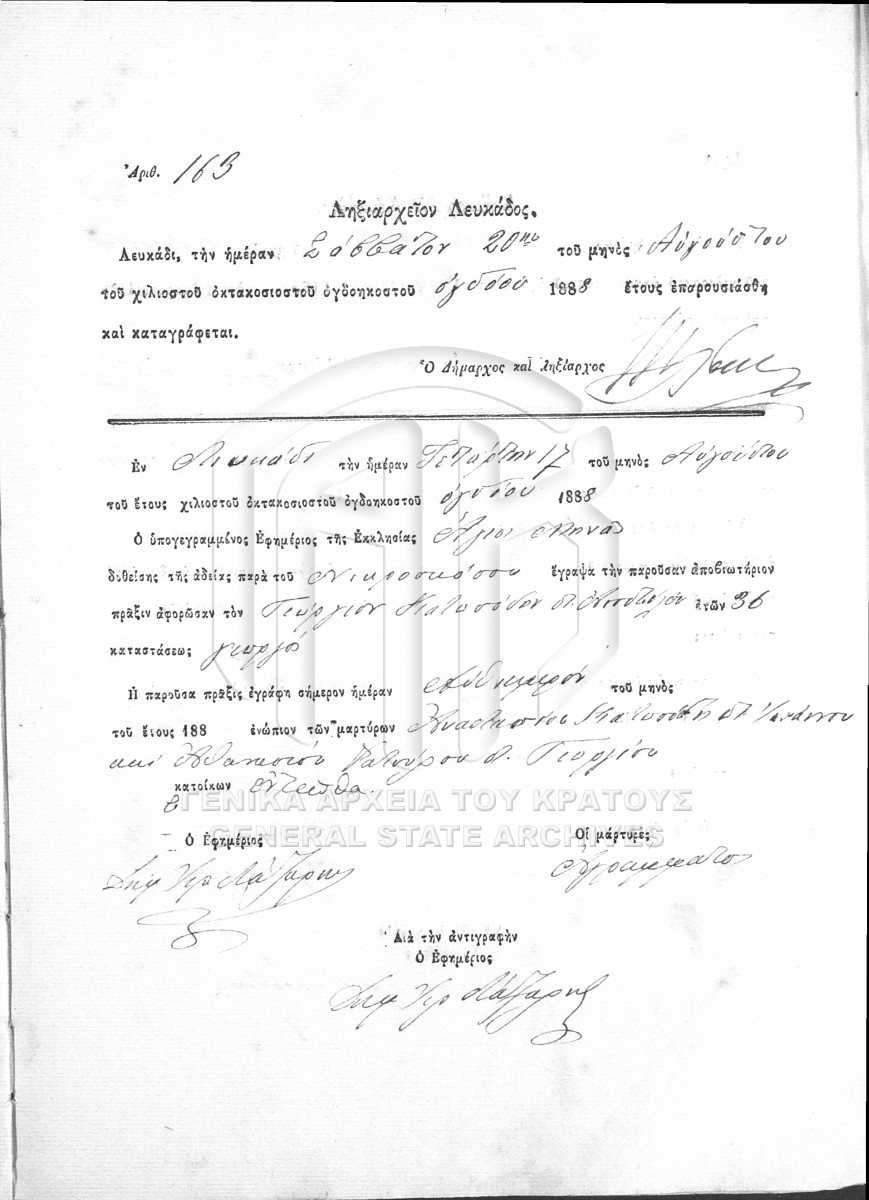 Ἀριθ. 163
Ληξιαρχεῖον Λευκάδος.
Λευκάδι, τὴν ἡμέραν Σάββατον 20 τοῦ μηνὸς Αὐγούστου
τοῦ χιλιοστοῦ ὀκτακοσιοστοῦ ὀγδοηκοστοῦ ὀγδόου 1888 ἔτους ἐπαρουσιάσθη
καὶ καταγράφεται.
Ὁ Δήμαρχος καὶ ληξίαρχος
Ἐν Λευκάδι τὴν ἡμέραν Τετάρτην 17 τοῦ μηνὸς Αὐγούστου
τοῦ ἔτους χιλιοστοῦ ὀκτακοσιοστοῦ ὀγδοηκοστοῦ ὀγδόου 1888
Ὁ ὑπογεγραμμένος Ἐφημέριος τῆς Ἐκκλησίας Ἁγίου Μηνᾶ
δοθείσης τῆς ἀδείας παρὰ τοῦ Νεκροσκόπου ἔγραψα τὴν παροῦσαν ἀποβιωτήριον
πρᾶξιν ἀφορῶσαν τὸν Γεώργιον ἐτῶν 36
καταστάσεως γεωργό
Ἡ παροῦσα πρᾶξις ἐγράφη σήμερον ἡμέραν αὐθημερόν τοῦ μηνὸς
τοῦ ἔτους 188 ἐνώπιον τῶν μαρτύρων Ἀναστασίου Ἰωάννου
καὶ Ἀθανασίου Γεωργίου
κατοίκων ἐνταῦθα.
ΓΕΝΙΚΑ ΑΡΧΕΙΑ ΤΟΥ ΚΡΑΤΟΥΣ
GENERAL STATE ARCHIVES
Ὁ Ἐφημέριος Οἱ μάρτυρες
Ἀγράμματοι
Διὰ τὴν ἀντιγραφὴν
Ὁ Ἐφημέριος